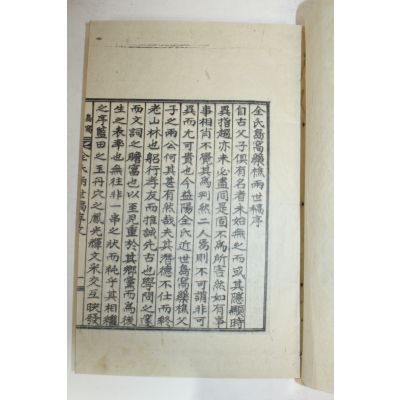 全氏島窩藥樵兩世稿序
自古父子俱有名者未始無之而或其隱顯時
異指趨亦未必盡同是固不爲所害然如有事
事相肖不覺其爲判然二人焉則不可謂非可
異而尤可貴也今益陽全氏近世島窩藥樵父
子之兩公何其甚有然哉夫其潛德不仕而終
老山林也躬行孝友而推誠先古也學問之邃
而文詞之贍富也以至見重於其鄉黨而爲後
生之表率也無往非一串之狀而純乎其相繼
之序藍田之玉丹穴之鳳光輝文采交互映發
全氏兩世稿序
一